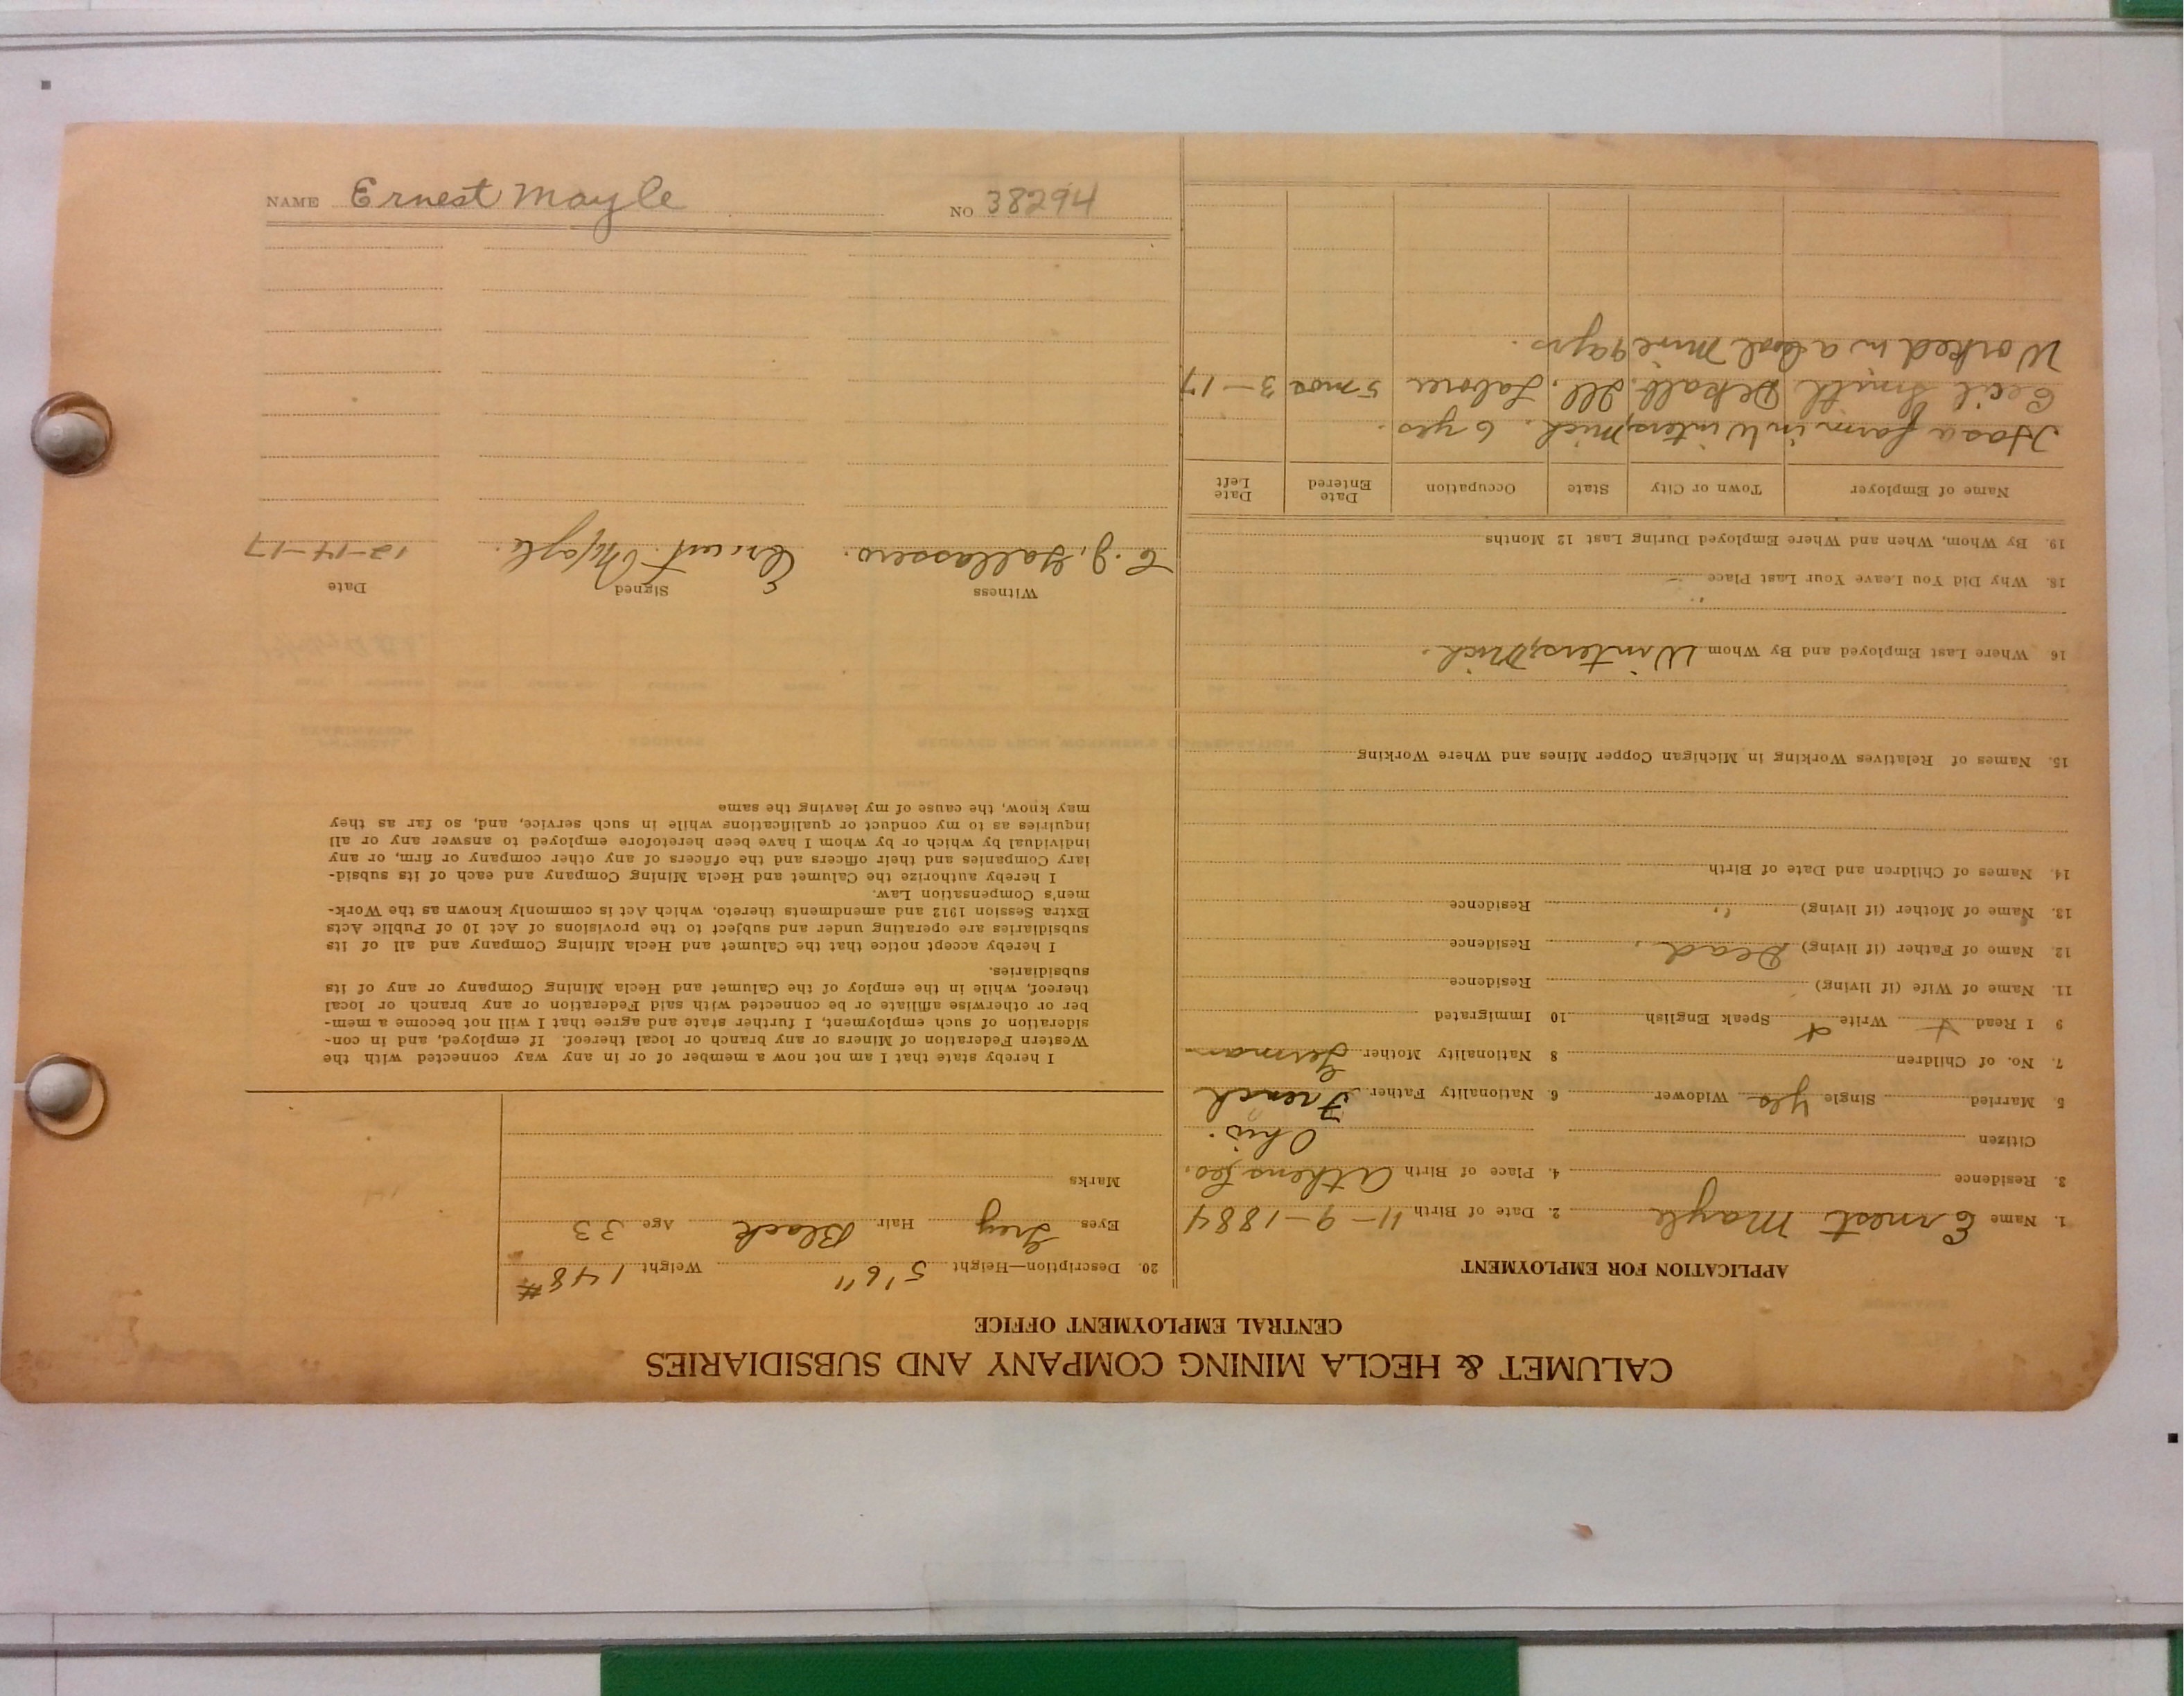 CALUMET & HECLA MINING COMPANY AND SUBSIDIARIES
CENTRAL EMPLOYMENT OFFICE
APPLICATION FOR EMPLOYMENT
1. Name Ernest Mayle 2. Date of Birth 11-9-1884
3. Residence 4. Place of Birth Athens Co.
Citizen Ohio.
5 Married Single Yes Widower 6. Nationality Father French
7. No. of Children 8 Nationality Mother German
9 I Read + Write + Speak English 10 Immigrated
11. Name of Wife (if living) Residence
12. Name of Father (if living) Dead, Residence
13. Name of Mother (if living) " Residence
14. Names of Children and Date of Birth
15. Names of Relatives Working in Michigan Copper Mines and Where Working
16 Where Last Employed and By Whom Winters, Mich.
18. Why Did You Leave Your Last Place
19. By Whom, When and Where Employed During Last 12 Months
Name of Employer Town or City State Occupation Date Entered Date Left
Has a farm in Winters, Mich. 6 yrs.
Cecil Smith Dekalb, Ill. Laborer 5 mos 3-17
Worked in a Coal Mine 9 yrs.
20. Description—Height 5'6" Weight 148#
Eyes Grey Hair Black Age 33
Marks
I hereby state that I am not now a member of or in any way connected with the
Western Federation of Miners or any branch or local thereof. If employed, and in con-
sideration of such employment, I further state and agree that I will not become a mem-
ber or otherwise affiliate or be connected with said Federation or any branch or local
thereof, while in the employ of the Calumet and Hecla Mining Company or any of its
subsidiaries.
I hereby accept notice that the Calumet and Hecla Mining Company and all of its
subsidiaries are operating under and subject to the provisions of Act 10 of Public Acts
Extra Session 1912 and amendments thereto, which Act is commonly known as the Work-
men's Compensation Law.
I hereby authorize the Calumet and Hecla Mining Company and each of its subsid-
iary Companies and their officers and the officers of any other company or firm, or any
individual by which or by whom I have been heretofore employed to answer any or all
inquiries as to my conduct or qualifications while in such service, and, so far as they
may know, the cause of my leaving the same
Witness Signed Date
Ernest Mayle. 12-14-17
NAME Ernest Mayle NO 38294